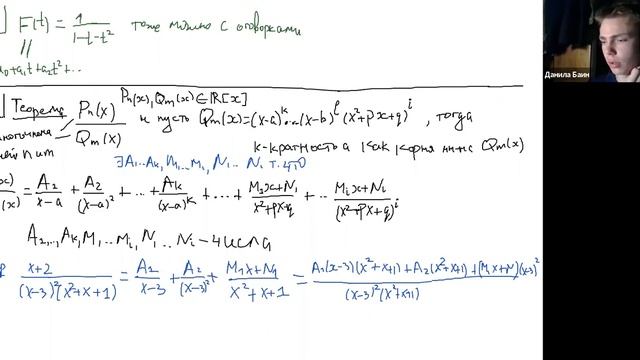 ] F(t) = 1/(1-t-t²) тоже можно с оговорками
//
a₀+a₁t+a₂t²+...
Данила Баин
] Теорема Pₙ(x)/Qₘ(x) Pₙ(x), Qₘ(x) ∈ ℝ[x]
и пусть Qₘ(x) = (x-a)ᵏ...(x-b)ˡ (x²+px+q)ⁱ, тогда
k-кратность a как корня Qₘ(x)
∃ A₁...Aₖ, M₁...Mᵢ, N₁...Nᵢ т.что
= A₁/(x-a) + A₂/(x-a)² + ... + Aₖ/(x-a)ᵏ + ... + (M₁x+N₁)/(x²+px+q) + ... (Mᵢx+Nᵢ)/(x²+px+q)ⁱ
A₁,..,Aₖ, M₁...Mᵢ, N₁...Nᵢ - числа
(x+2)/((x-3)²(x²+x+1)) = A₁/(x-3) + A₂/(x-3)² + (M₁x+N₁)/(x²+x+1) = (A₁(x-3)(x²+x+1)+A₂(x²+x+1)+(M₁x+N)(x-3)²)/((x-3)²(x²+x+1))